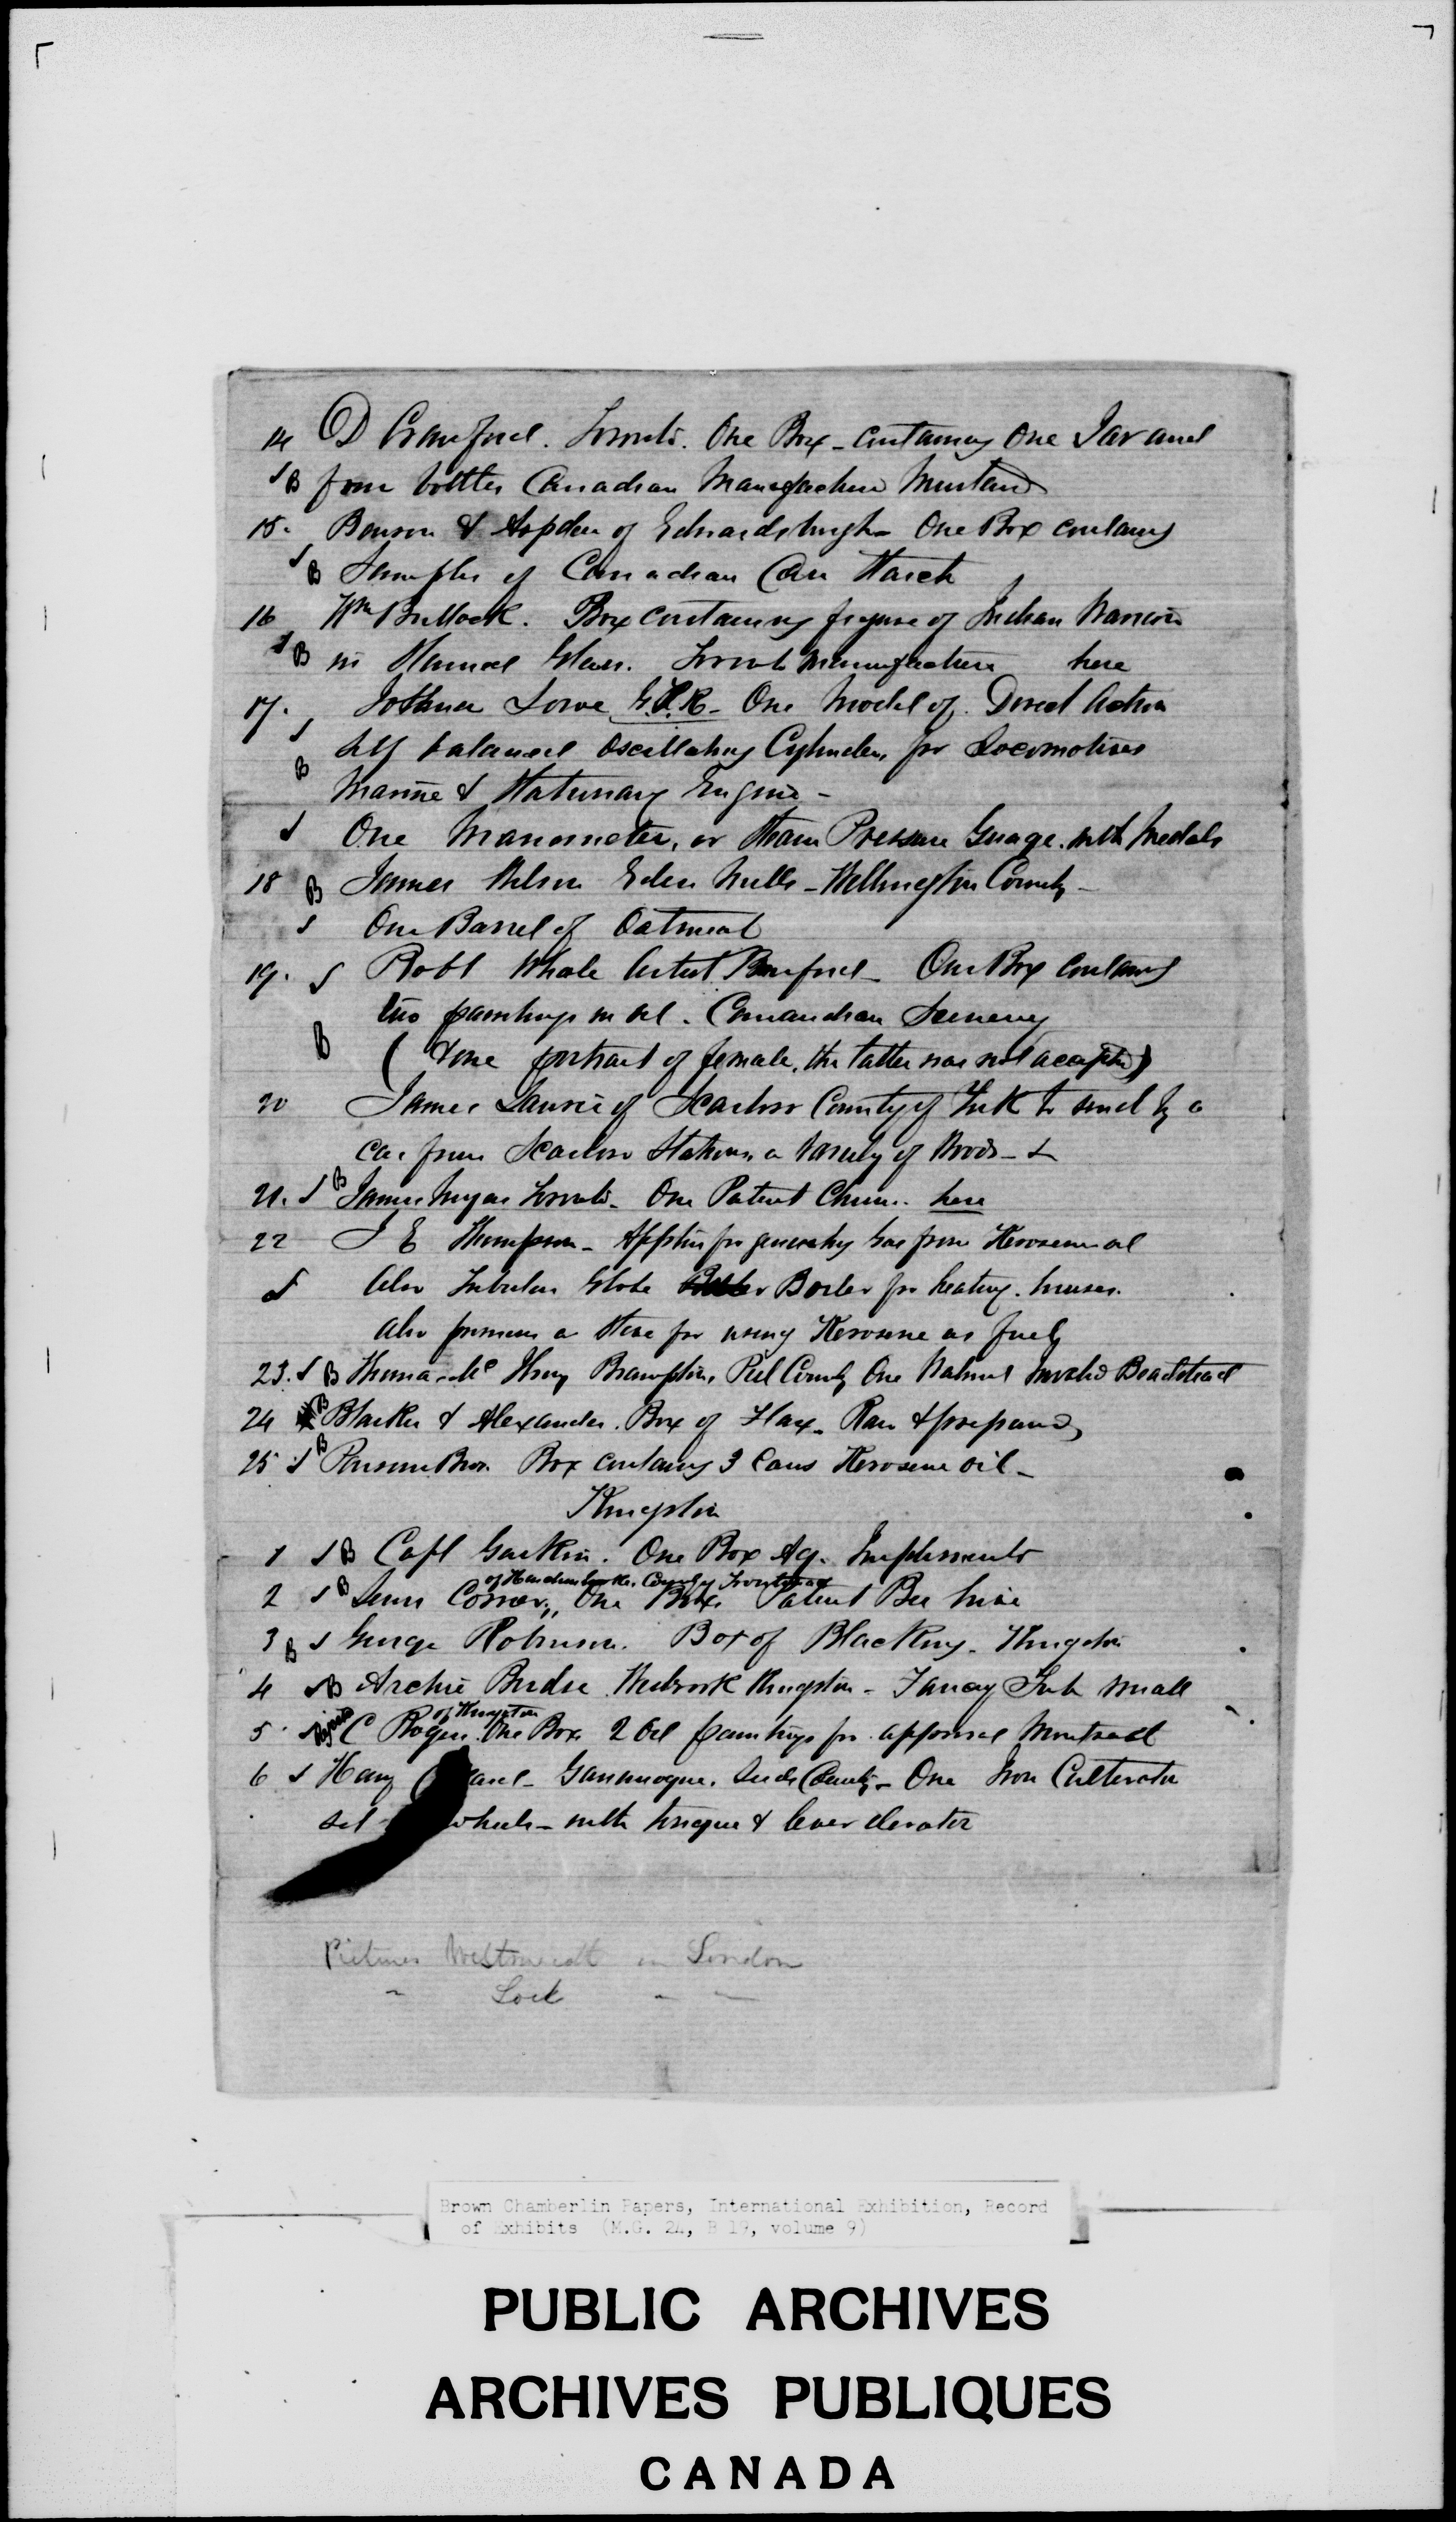 14 D Crawford. Toronto. One Box - containing One Jar and
S B four bottles Canadian Manufactured Mustard
15. Benson & Aspden of Edwardsburgh - One Box containing
S B Samples of Canadian Corn Starch
16 Wm Bullock. Box containing figure of Indian Warrior
S B in Stained Glass. Toronto manufacture here
17. Joshua Lowe G.T.R. - One Model of Direct Action
S B Self balanced Oscillating Cylinders for Locomotives
Marine & Stationary Engine -
S One Manometer, or Steam Pressure Guage. with Medals
18 B James Wilson Eden Mills - Wellington County -
S One Barrel of Oatmeal
19. S Robt Whale Artist Burford - One Box containing
two paintings in oil. Canadian Scenery
B ( & one portrait of female, the latter was not accepted)
20 James Laurie of Scarboro County of York to send by a
car from Scarboro Station, a variety of Woods - &
21. S B James Toronto - One Patent Churn. here
22 J E Thompson - for generating Gas from Kerosene oil
S Also Tubular Globe Boiler for heating houses.
Also promises a Stove for using Kerosene as fuel
23. S B Thomas Brampton, Peel County One Walnut Invalid Beadstead
24 B & Alexander. Box of Flax - Raw & prepared
25 S B Parson Bros. Box containing 3 Cans Kerosene oil -
Kingston
1 S B Capt Gaskin. One Box Ag. Implements
of County of Frontenac
2 S B One Box Patent Bee hive
3 B S George Robinson. Box of Blacking - Kingston
4 S B Archie Westbrook Kingston - Fancy Tub small
of Kingston
5 C Rogers. One Box 2 Oil paintings for approval Montreal
6 S Gananoque. Leeds County - One Iron Cultivator
set wheels - with tongue & lever elevator
Pictures in London
" Lock " "
Brown Chamberlin Papers, International Exhibition, Record
of Exhibits (M.G. 24, B 19, volume 9)
PUBLIC ARCHIVES
ARCHIVES PUBLIQUES
CANADA